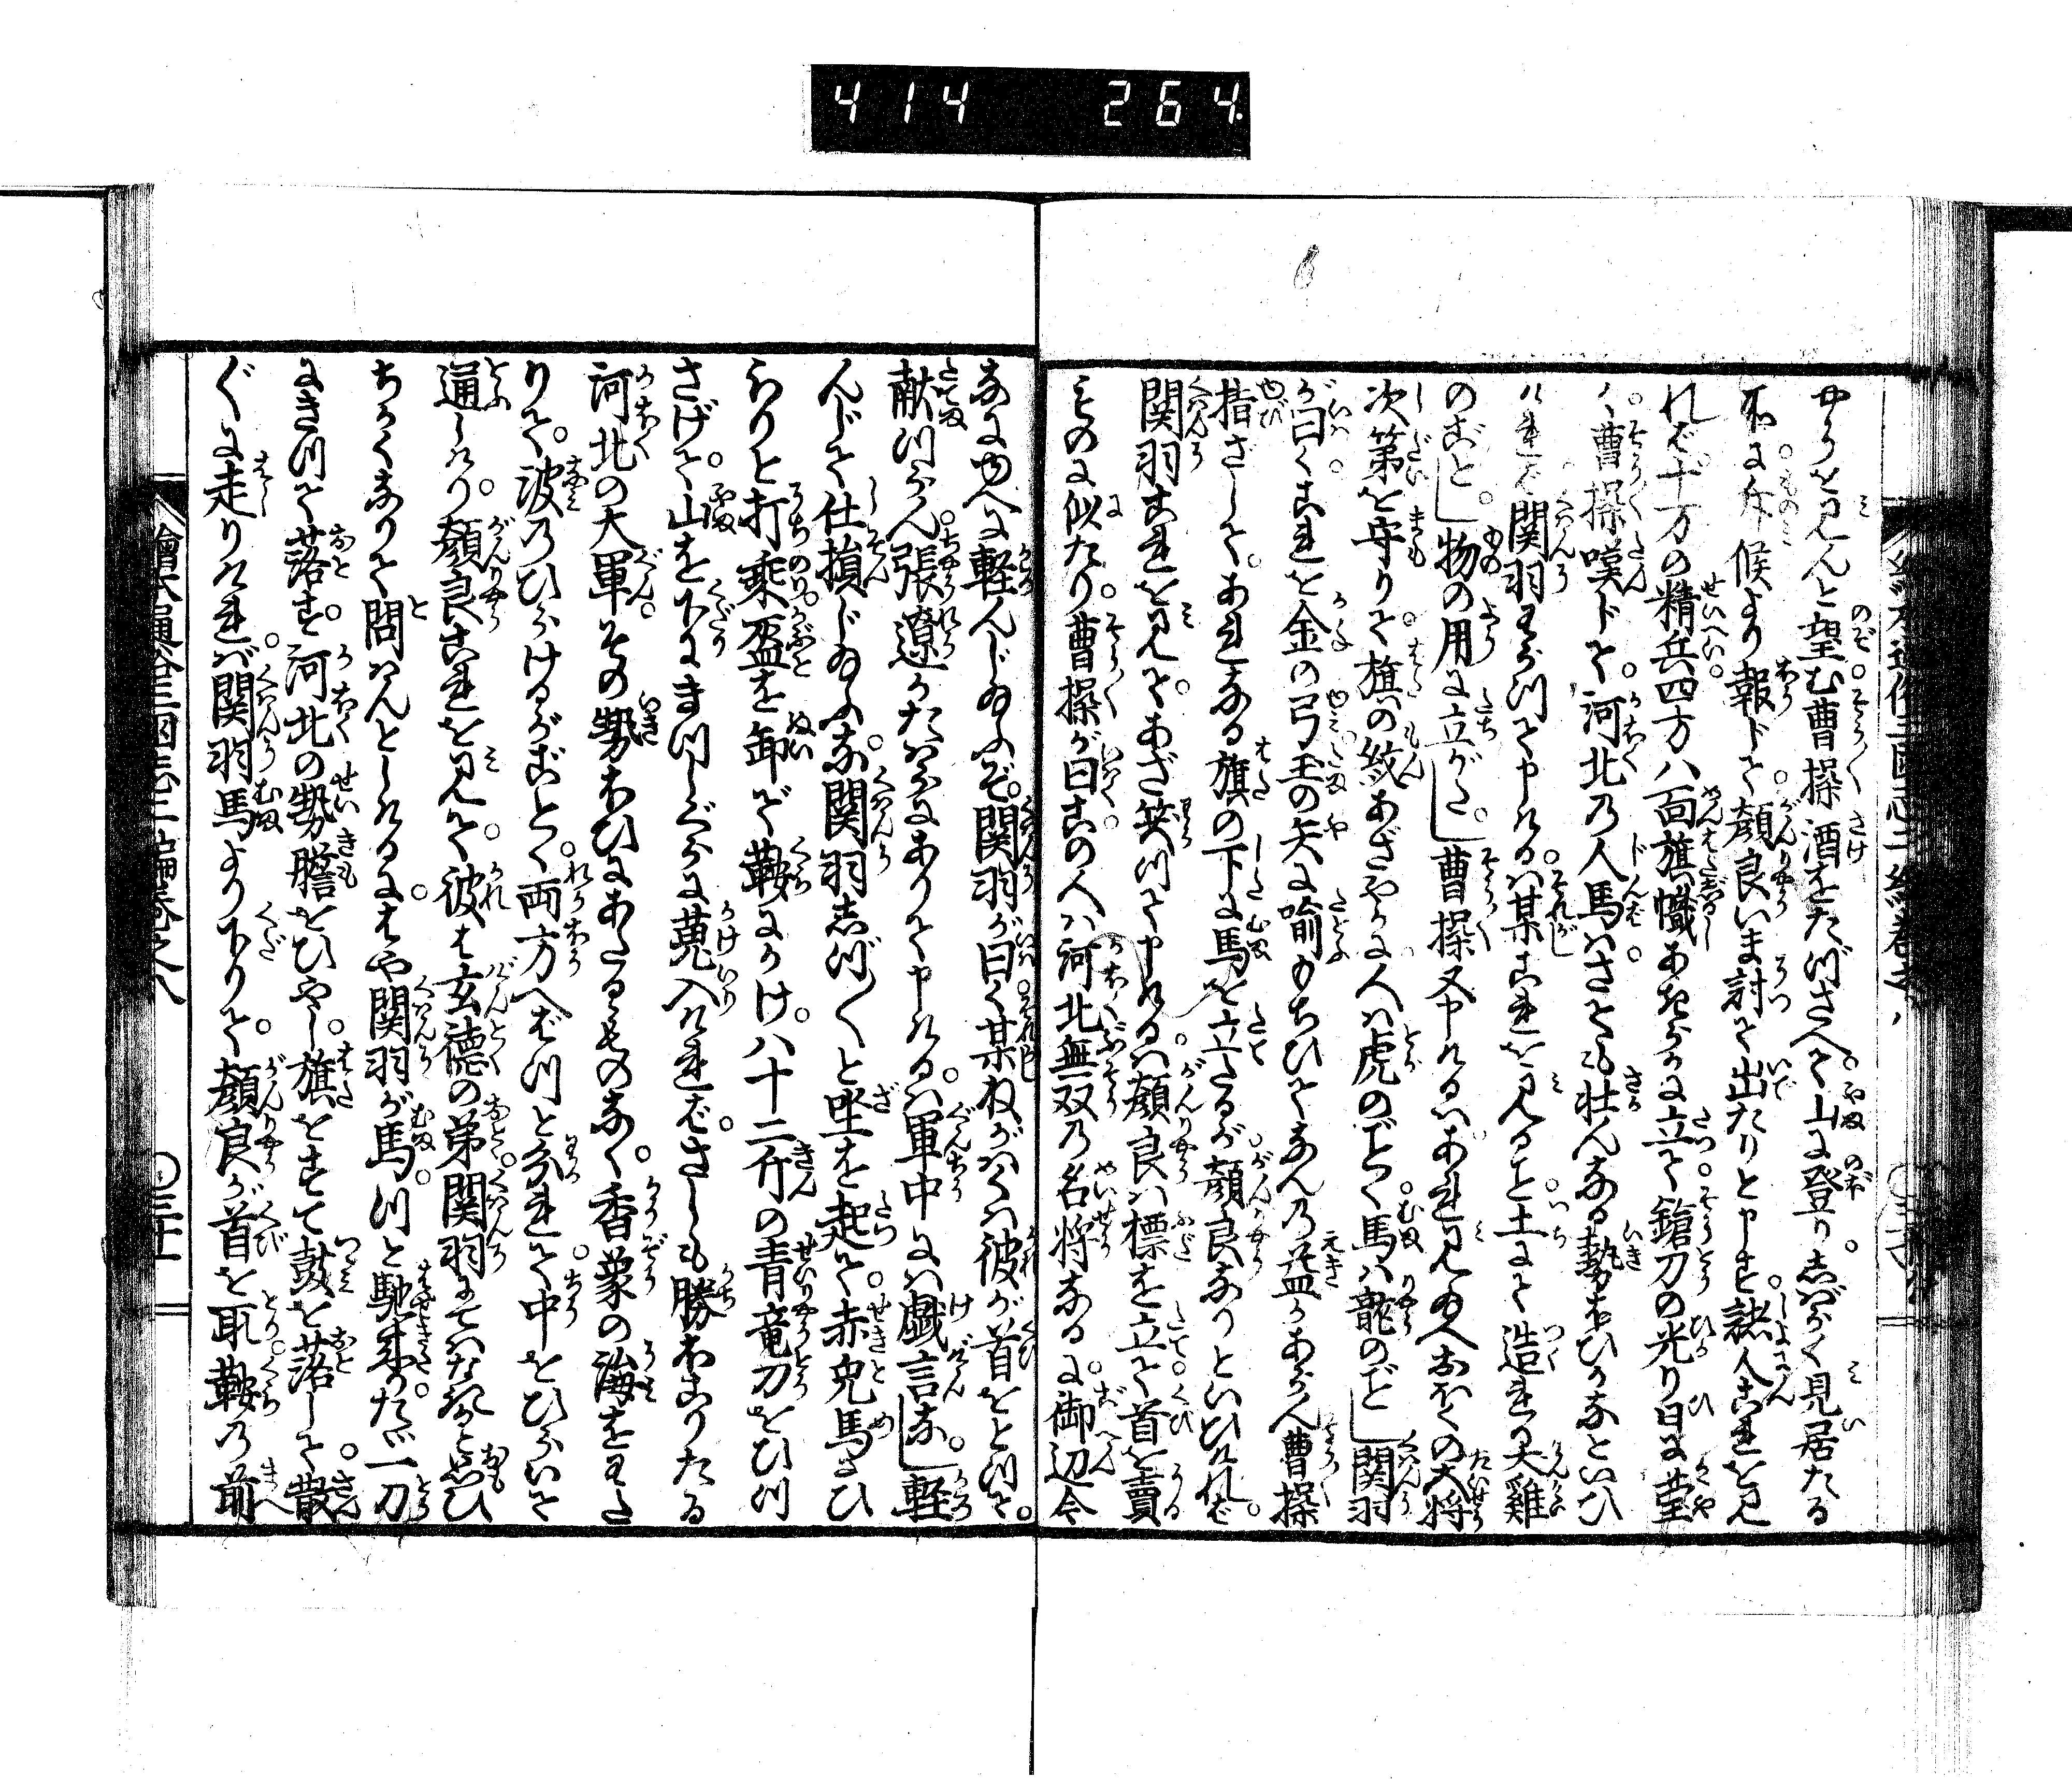 414 264
やうを見んと望む曹操酒をたづさへて山に登りしばらく見居たる
所に斥候より報じて顔良いま討て出たりと申す諸人これを見
れば十万の精兵四方八面旗幟あきらかに立て鎗刀の光り日に瑩
く曹操嘆じて河北の人馬はさても壮んなる勢おひかなといひ
ければ関羽わらつて申けるは某これを見ると土にて造れる犬雞
のごとし物の用に立がたし曹操又申けるはあれ見給へおほくの大将
次第を守りて旗の紋あざやかに人は虎のごとく馬は龍のごとし関羽
が曰くこれを金の弓玉の矢に喩もちひてなんの益かあらん曹操
指ざしてあれなる旗の下に馬を立たるが顔良なりといひければ
関羽これを見てあざ笑つて申けるは顔良は標を立て首を賣
ものに似たり曹操が曰くこの人は河北無双の名将なるに御辺今
なにゆへに軽んじ給ふぞ関羽が曰く某ねがはくは彼が首をとつて
献つらん張遼かたはらにありて申けるは軍中には戯言なし軽
んじて仕損じ給ふな関羽しづ〳〵と坐を起て赤兎馬にひ
らりと打乗盔を卸で鞍にかけ八十二斤の青竜刀をひつ
さげて山を下にまつしぐらに蒐入ければさしも勝ほこりたる
河北の大軍その勢おひにあたるものなく香象の海をわた
りて波のひらけるがごとく両方へばつと分れて中をひらいて
通しけり顔良これを見て彼は玄徳の弟関羽にてはなきかと思ひ
ちかくなりて問はんとしけるにはや関羽が馬つと馳来りただ一刀
にきつて落す河北の勢膽をひやし旗をすて鼓を落して散
ぐに走りければ関羽馬より下りて顔良が首を取鞍の前
繪本通俗三国志二編巻之八 ○三十一